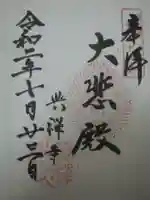 奉拝
大悲殿
興禅寺
令和二年十月廿三日